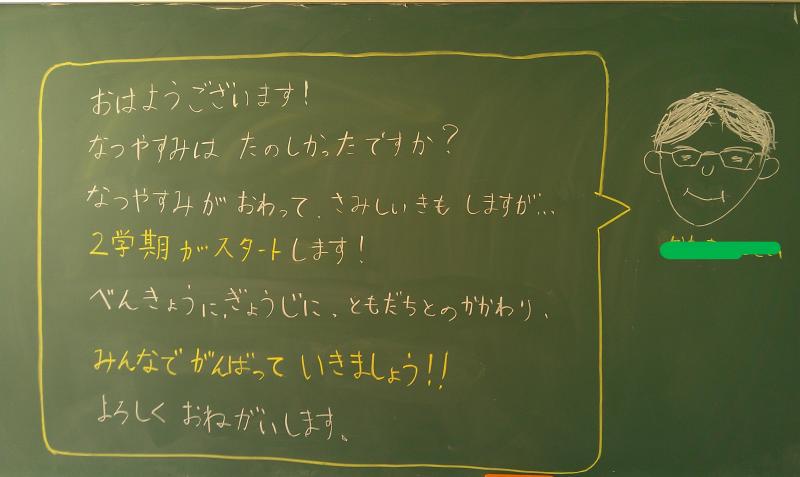 おはようございます！
なつやすみは たのしかったですか？
なつやすみが おわって、さみしいきも しますが…
2学期がスタートします！
べんきょうに、ぎょうじに、ともだちとのかかわり、
みんなで がんばって いきましょう！！
よろしく おねがいします。